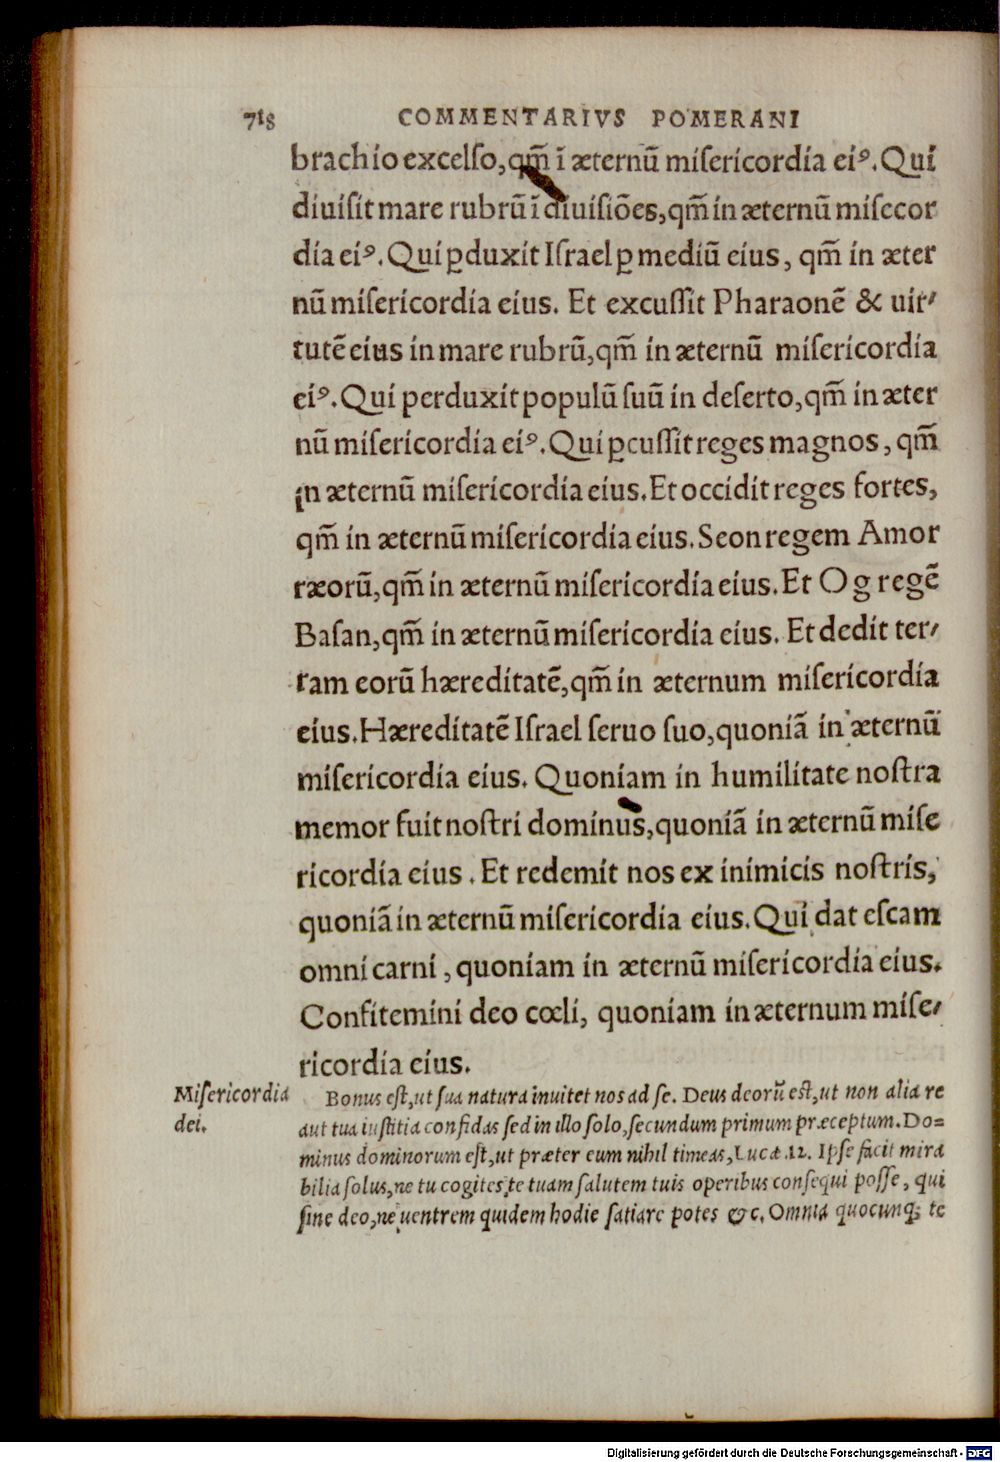 718 COMMENTARIVS POMERANI
brachio excelſo,qm̃ ĩ æternũ miſericordia eiꝰ. Qui
diuiſit mare rubrũ ĩ diuiſiões,qm̃ in æternũ miſecor
dia eiꝰ. Qui ꝑduxit Iſrael ꝑ mediũ eius, qm̃ in æter
nũ miſericordia eius. Et excuſſit Pharaonẽ & uir⸗
tutẽ eius in mare rubrũ,qm̃ in æternũ miſericordia
eiꝰ. Qui perduxit populũ ſuũ in deſerto,qm̃ in æter
nũ miſericordia eiꝰ. Qui ꝑcuſſit reges magnos, qm̃
in æternũ miſericordia eius. Et occidit reges fortes,
qm̃ in æternũ miſericordia eius. Seon regem Amor
ræorũ,qm̃ in æternũ miſericordia eius. Et Og regẽ
Baſan,qm̃ in æternũ miſericordia eius. Et dedit ter⸗
ram eorũ hæreditatẽ,qm̃ in æternum miſericordia
eius. Hæreditatẽ Iſrael ſeruo ſuo,quoniã in æternũ
miſericordia eius. Quoniam in humilitate noſtra
memor fuit noſtri dominus,quoniã in æternũ miſe
ricordia eius. Et redemit nos ex inimicis noſtris,
quoniã in æternũ miſericordia eius. Qui dat eſcam
omni carni, quoniam in æternũ miſericordia eius.
Confitemini deo cœli, quoniam in æternum miſe⸗
ricordia eius.
Miſericordia
dei.
Bonus eſt,ut ſua natura inuitet nos ad ſe. Deus deorũ eſt,ut non alia re
aut tua iuſtitia confidas ſed in illo ſolo,ſecundum primum præceptum. Do=
minus dominorum eſt,ut præter eum nihil timeas,Lucæ .12. Ipſe facit mira
bilia ſolus,ne tu cogites te tuam ſalutem tuis operibus conſequi poſſe, qui
ſine deo,ne uentrem quidem hodie ſatiare potes &c. Omnia quocunq; te
Digitalisierung gefördert durch die Deutsche Forschungsgemeinschaft - DFG